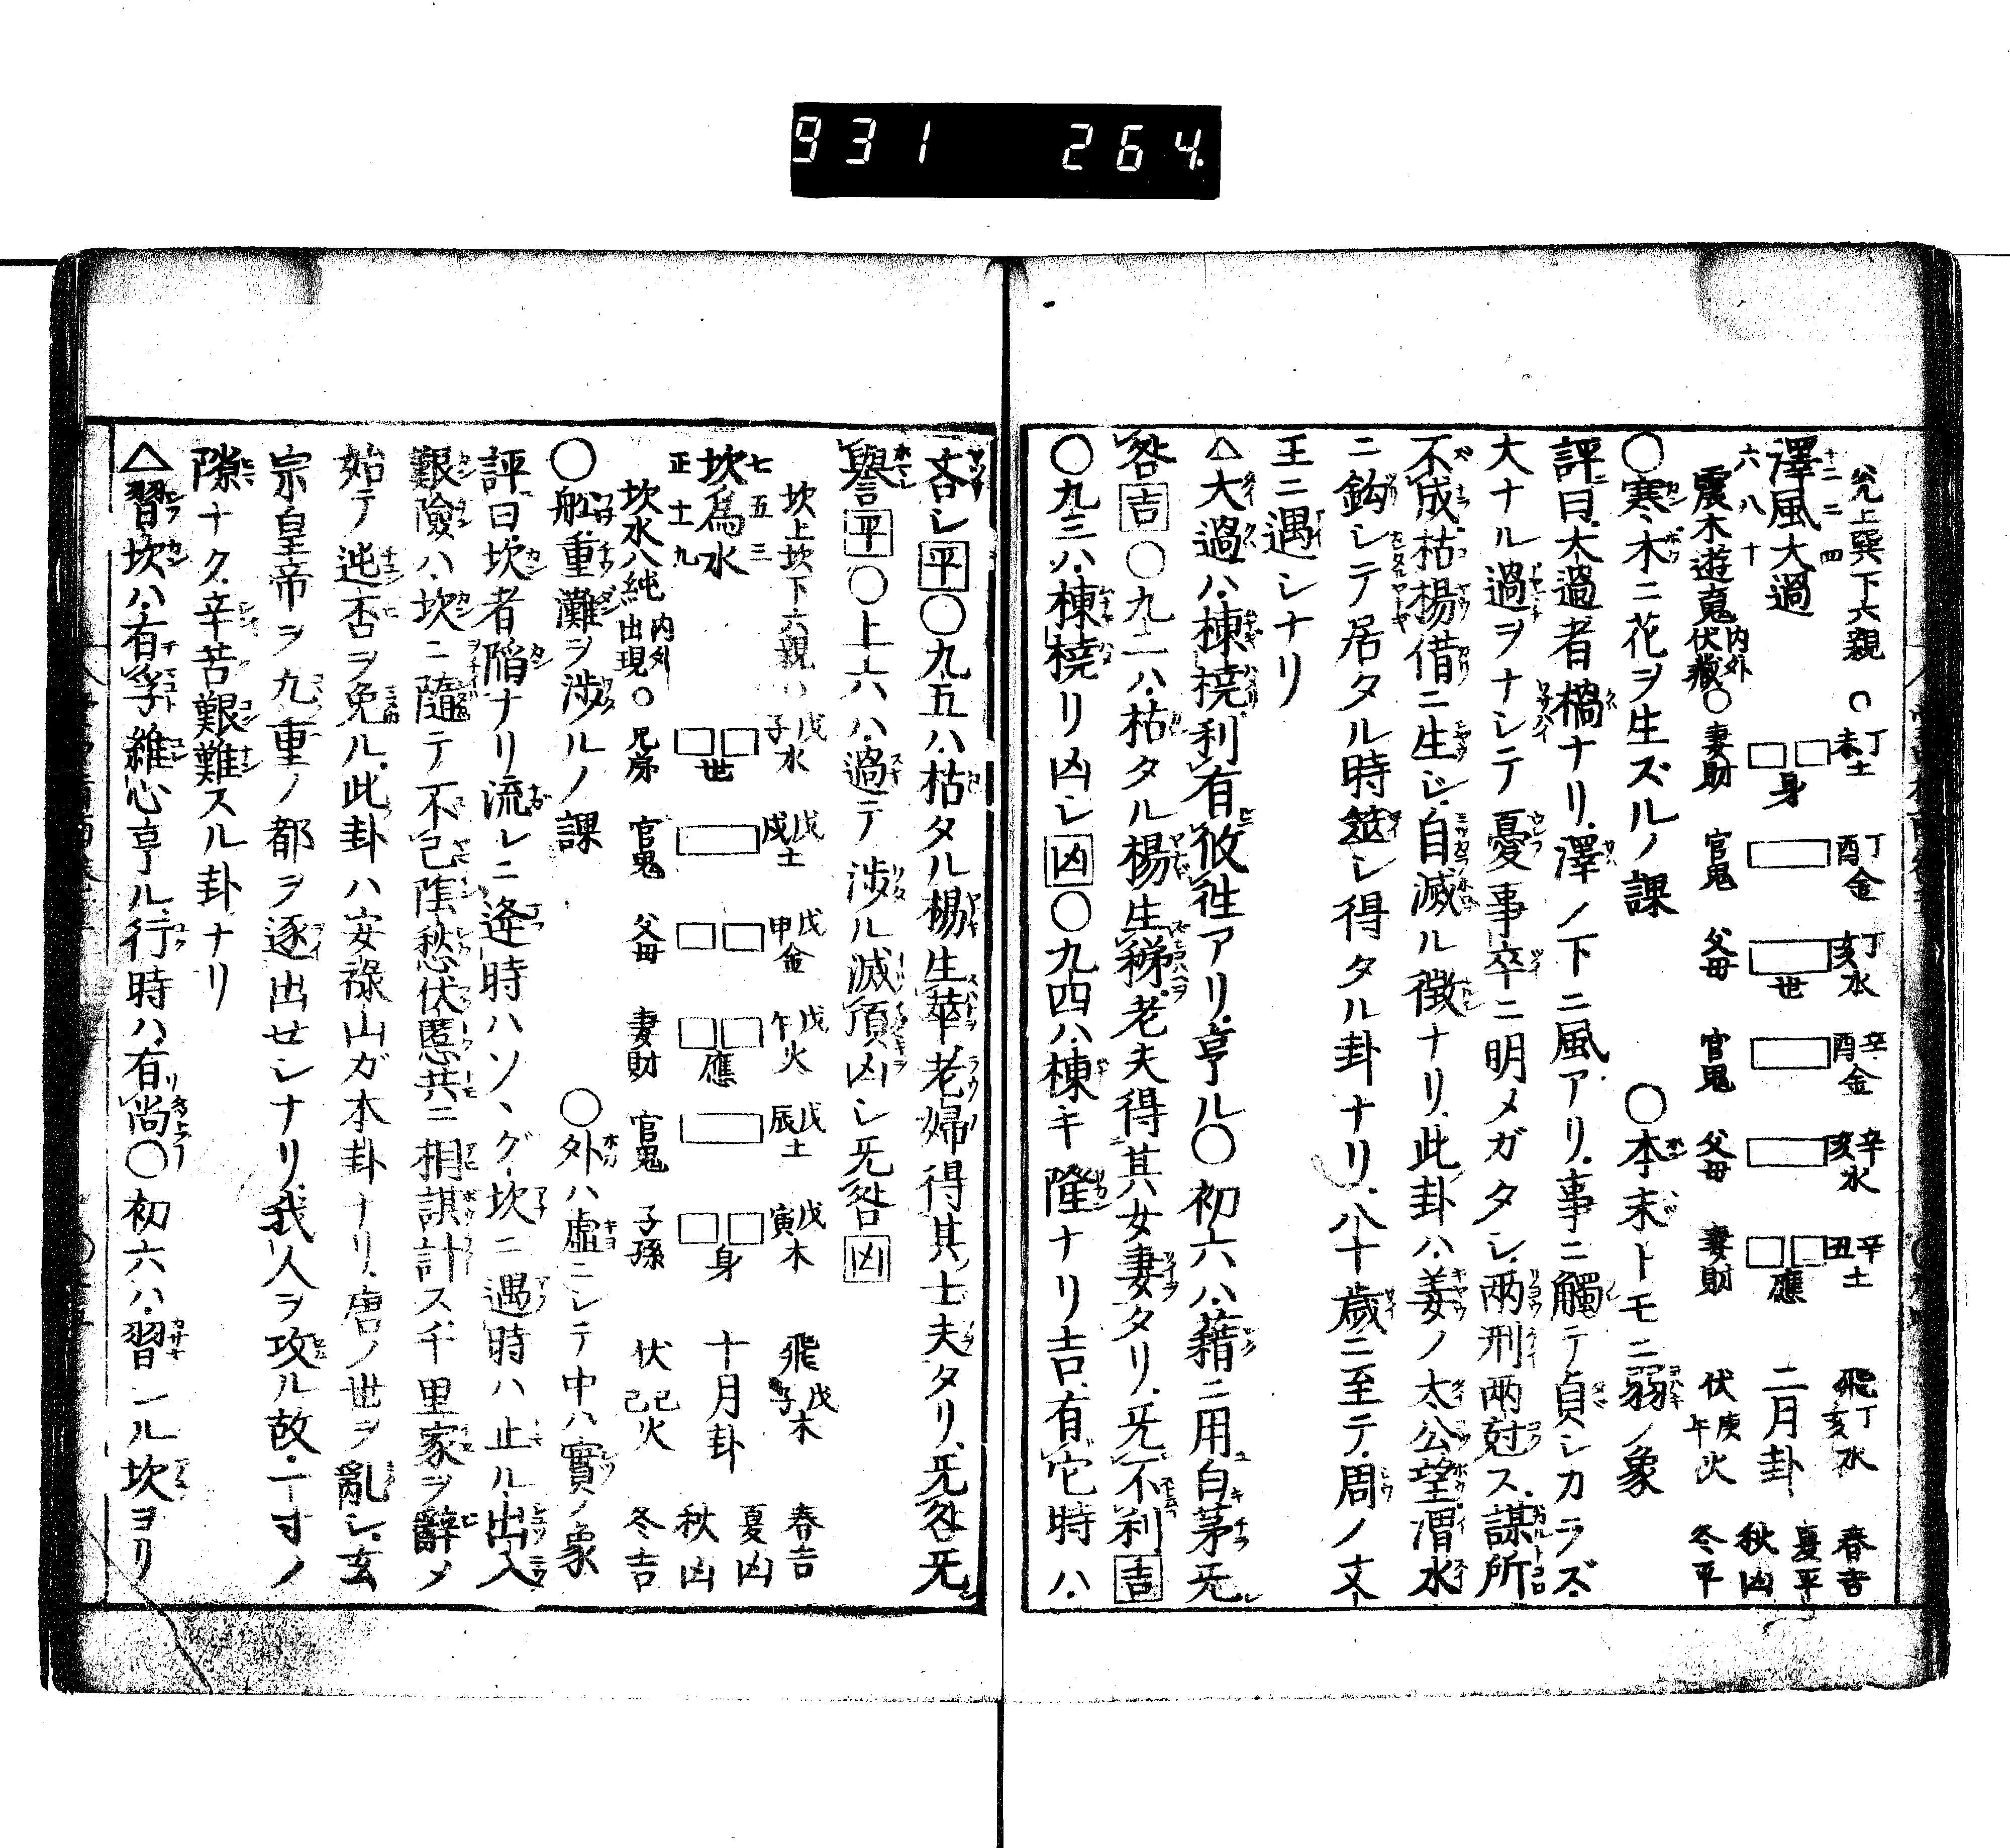 931 264
兌上巽下六親
十二 二 四
澤風大過
六 八 十
震木遊䰟 内外伏藏
〇 丁未土 丁酉金 丁亥水 辛酉金 辛亥水 辛丑土
身 世 應
〇 妻財 官鬼 父母 官鬼 父母 妻財
飛丁亥水
二月卦
伏庚午火
春吉
夏平
秋凶
冬平
〇寒木ニ花ヲ生ズルノ課 〇本末トモニ弱ノ象
評曰大過者檛ナリ澤ノ下ニ風アリ事ニ觸テ貞シカラズ
大ナル過ヲナシテ憂事卒ニ明メガタシ兩刑兩尅ス謀所
不成枯楊借ニ生ジ自滅ル徴ナリ此卦ハ姜ノ太公望渭水
ニ鈎シテ居タル時筮シ得タル卦ナリ八十歳ニ至テ周ノ文
王ニ遇シナリ
△大過ハ棟橈利有攸徃アリ亨ル〇初六ハ藉ニ用白茅旡
咎吉〇九二ハ枯タル楊生稊老夫得其女妻タリ旡不利吉
〇九三ハ棟橈リ凶シ凶〇九四ハ棟キ隆ナリ吉有它時ハ
吝シ平〇九五ハ枯タル楊生華老婦得其士夫タリ旡咎旡
譽平〇上六ハ過テ渉ル滅頂凶シ旡咎凶
坎上坎下六親〇
七 五 三
坎爲水
正 十一 九
坎水八純 内外出現
戊子水 戊戌土 戊申金 戊午火 戊辰土 戊寅木
世 應 身
〇 兄弟 官鬼 父母 妻財 官鬼 子孫
飛戊子木
十月卦
伏己巳火
春吉
夏凶
秋凶
冬吉
〇舩重灘ヲ渉ルノ課 〇外ハ虚ニシテ中ハ實ノ象
評曰坎者陷ナリ流レニ逢時ハソヽグ坎ニ遇時ハ止ル出入
艱險ハ坎ニ隨テ不已陰愁伏慝共ニ相謀計ス千里家ヲ辭メ
始テ迍否ヲ免ル此卦ハ安祿山ガ本卦ナリ唐ノ世ヲ亂シ玄
宗皇帝ヲ九重ノ都ヲ逐出セシナリ我人ヲ攻ル故一寸ノ
隙ナク辛苦艱難スル卦ナリ
△習坎ハ有孚維心亨ル行時ハ有尚〇初六ハ習ル坎ヨリ